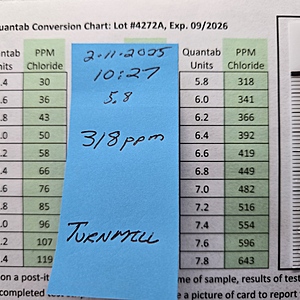 uantab Conversion Chart: Lot #4272A, Exp. 09/2026
ntab PPM Quantab PPM
nits Chloride Units Chloride
.4 30 5.8 318
.6 36 6.0 341
.8 43 6.2 366
.0 50 6.4 392
.2 58 6.6 419
.4 66 6.8 449
.6 76 7.0 482
.8 85 7.2 516
.0 96 7.4 554
.2 107 7.6 596
.4 119 7.8 643
2.11.2025
10:27
5.8
318 ppm
TURNMILL
on a post-it me of sample, results of test
completed test e a picture of card to report